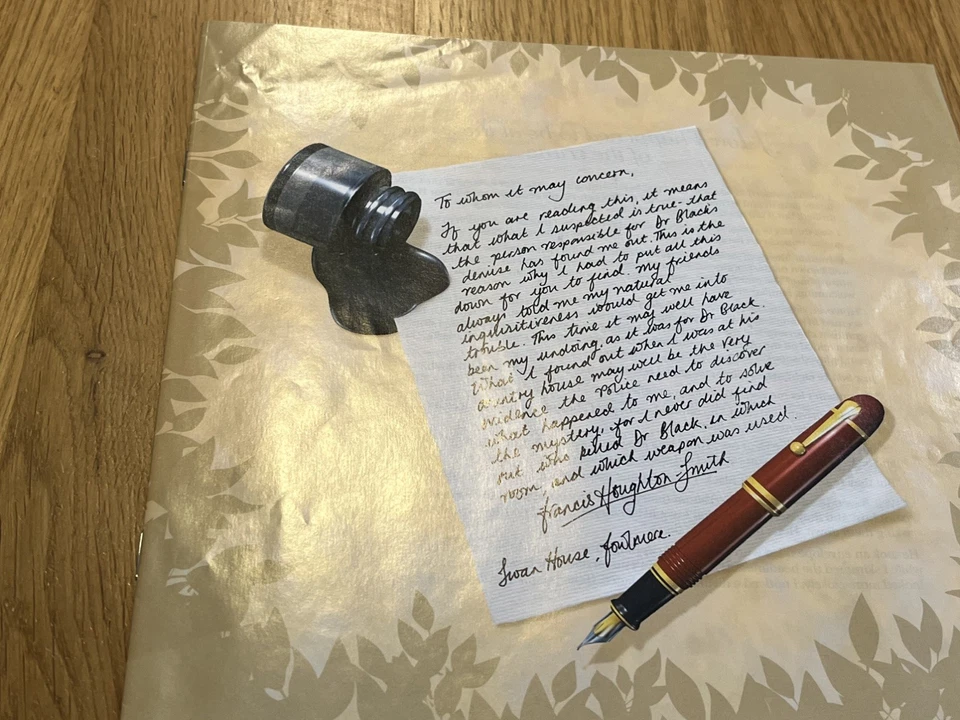 To whom it may concern,
If you are reading this, it means
that what I suspected is true - that
the person responsible for Dr Black's
demise has found me out. This is the
reason why I had to put all this
down for you to find. My friends
always told me my natural
inquisitiveness would get me into
trouble. This time it may well have
been my undoing, as it was for Dr Black.
What I found out when I was at his
country house may well be the very
evidence the Police need to discover
what happened to me, and to solve
the mystery, for I never did find
out who killed Dr Black, in which
room, and which weapon was used.
Francis Houghton-Smith
Swan House, Fowlmere.